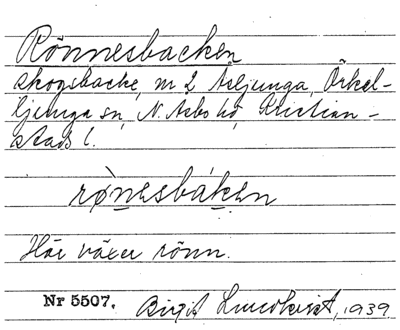 Rönnesbacken
skogsbacke, nr 2 Åsljunga, Örkel-
ljunga sn, N. Åsbo hd, Kristian-
stads l.
rø̀nesbáken
Här växer rönn.
Nr 5507. Birgit Lundkvist, 1939